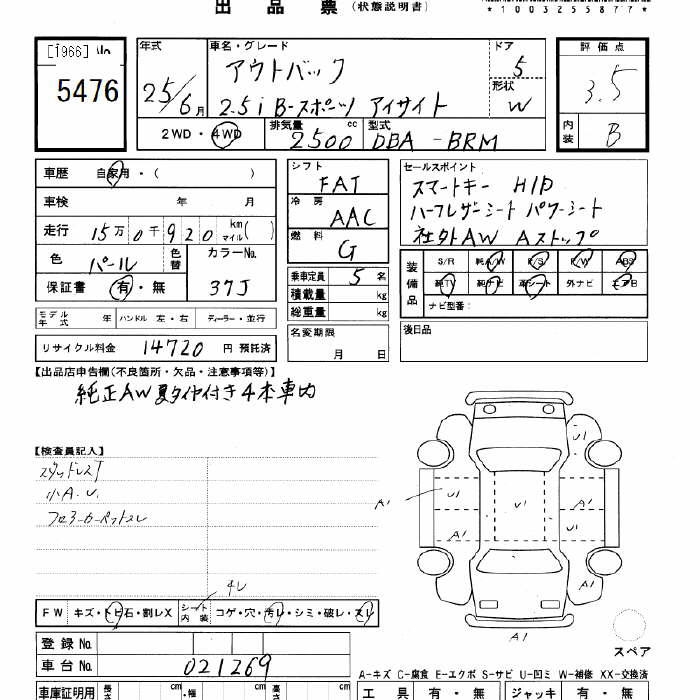 出品票 (状態説明書)
*1003255877*
[1966] 5476
年式 25/6月
車名・グレード アウトバック
2.5i B-スポーツ アイサイト
ドア 5
形状 W
評価点 3.5
内装 B
2WD・4WD 排気量 2500 cc 型式 DBA-BRM
車歴 自家用・( )
車検 年 月
走行 15万 0千 9 2 0 km マイル( )
色 パール 色替 カラーNo. 37J
保証書 有・無
シフト FAT
冷房 AAC
燃料 G
乗車定員 5 名
積載量 kg
総重量 kg
セールスポイント
スマートキー HID
ハーフレザーシート パワーシート
社外AW Aストップ
装備品 S/R 純A/W P/S P/W ABS
純TV 純ナビ 革シート 外ナビ エアB
ナビ型番:
モデル年式 年 ハンドル 左・右 ディーラー・並行
名変期限 月 日
後日品
リサイクル料金 14720 円 預託済
【出品店申告欄(不良箇所・欠品・注意事項等)】
純正AW夏タイヤ付き4本車内
【検査員記入】
スタッドレスT
小A.U.
フロアカーペットスレ
U1
A1 U1 U1 A1
A1 U1
A1
A1
4レ
FW キズ・トビ石・割レX シート内装 コゲ・穴・汚レ・シミ・破レ・スレ
スペア
登録No.
車台No. 021269
A-キズ C-腐食 E-エクボ S-サビ U-凹ミ W-補修 XX-交換済
車庫証明用 長さ cm ・幅 cm 高さ cm
工具 有・無 ジャッキ 有・無